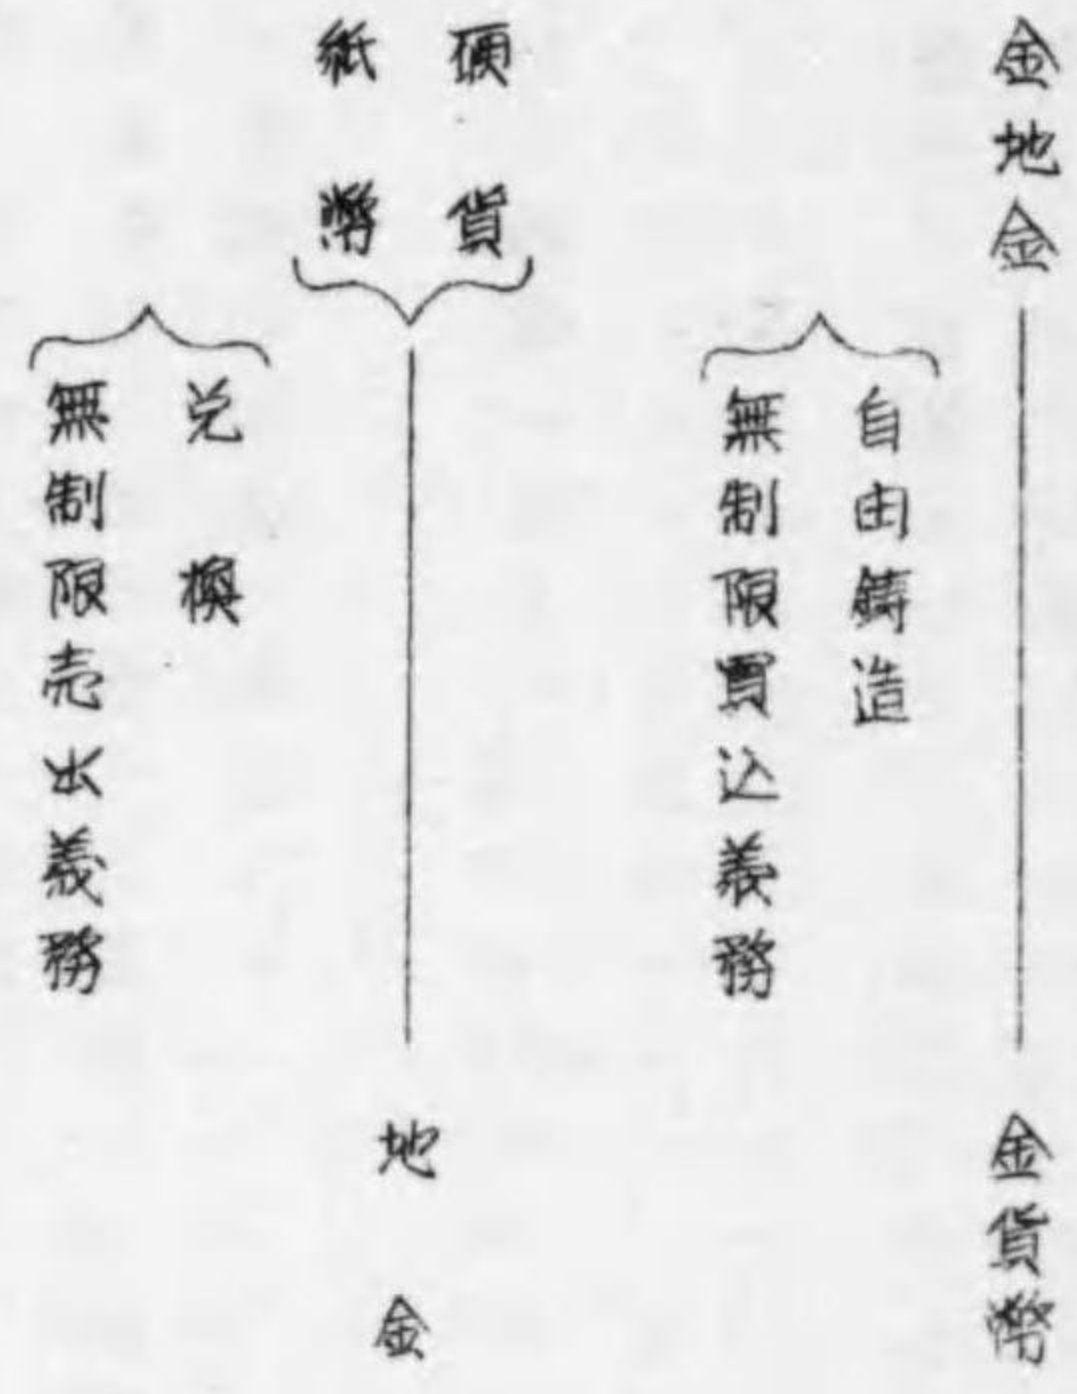 金地金 金貨幣
自由鋳造
無制限買込義務
硬貨
紙幣
地金
兌換
無制限売出義務